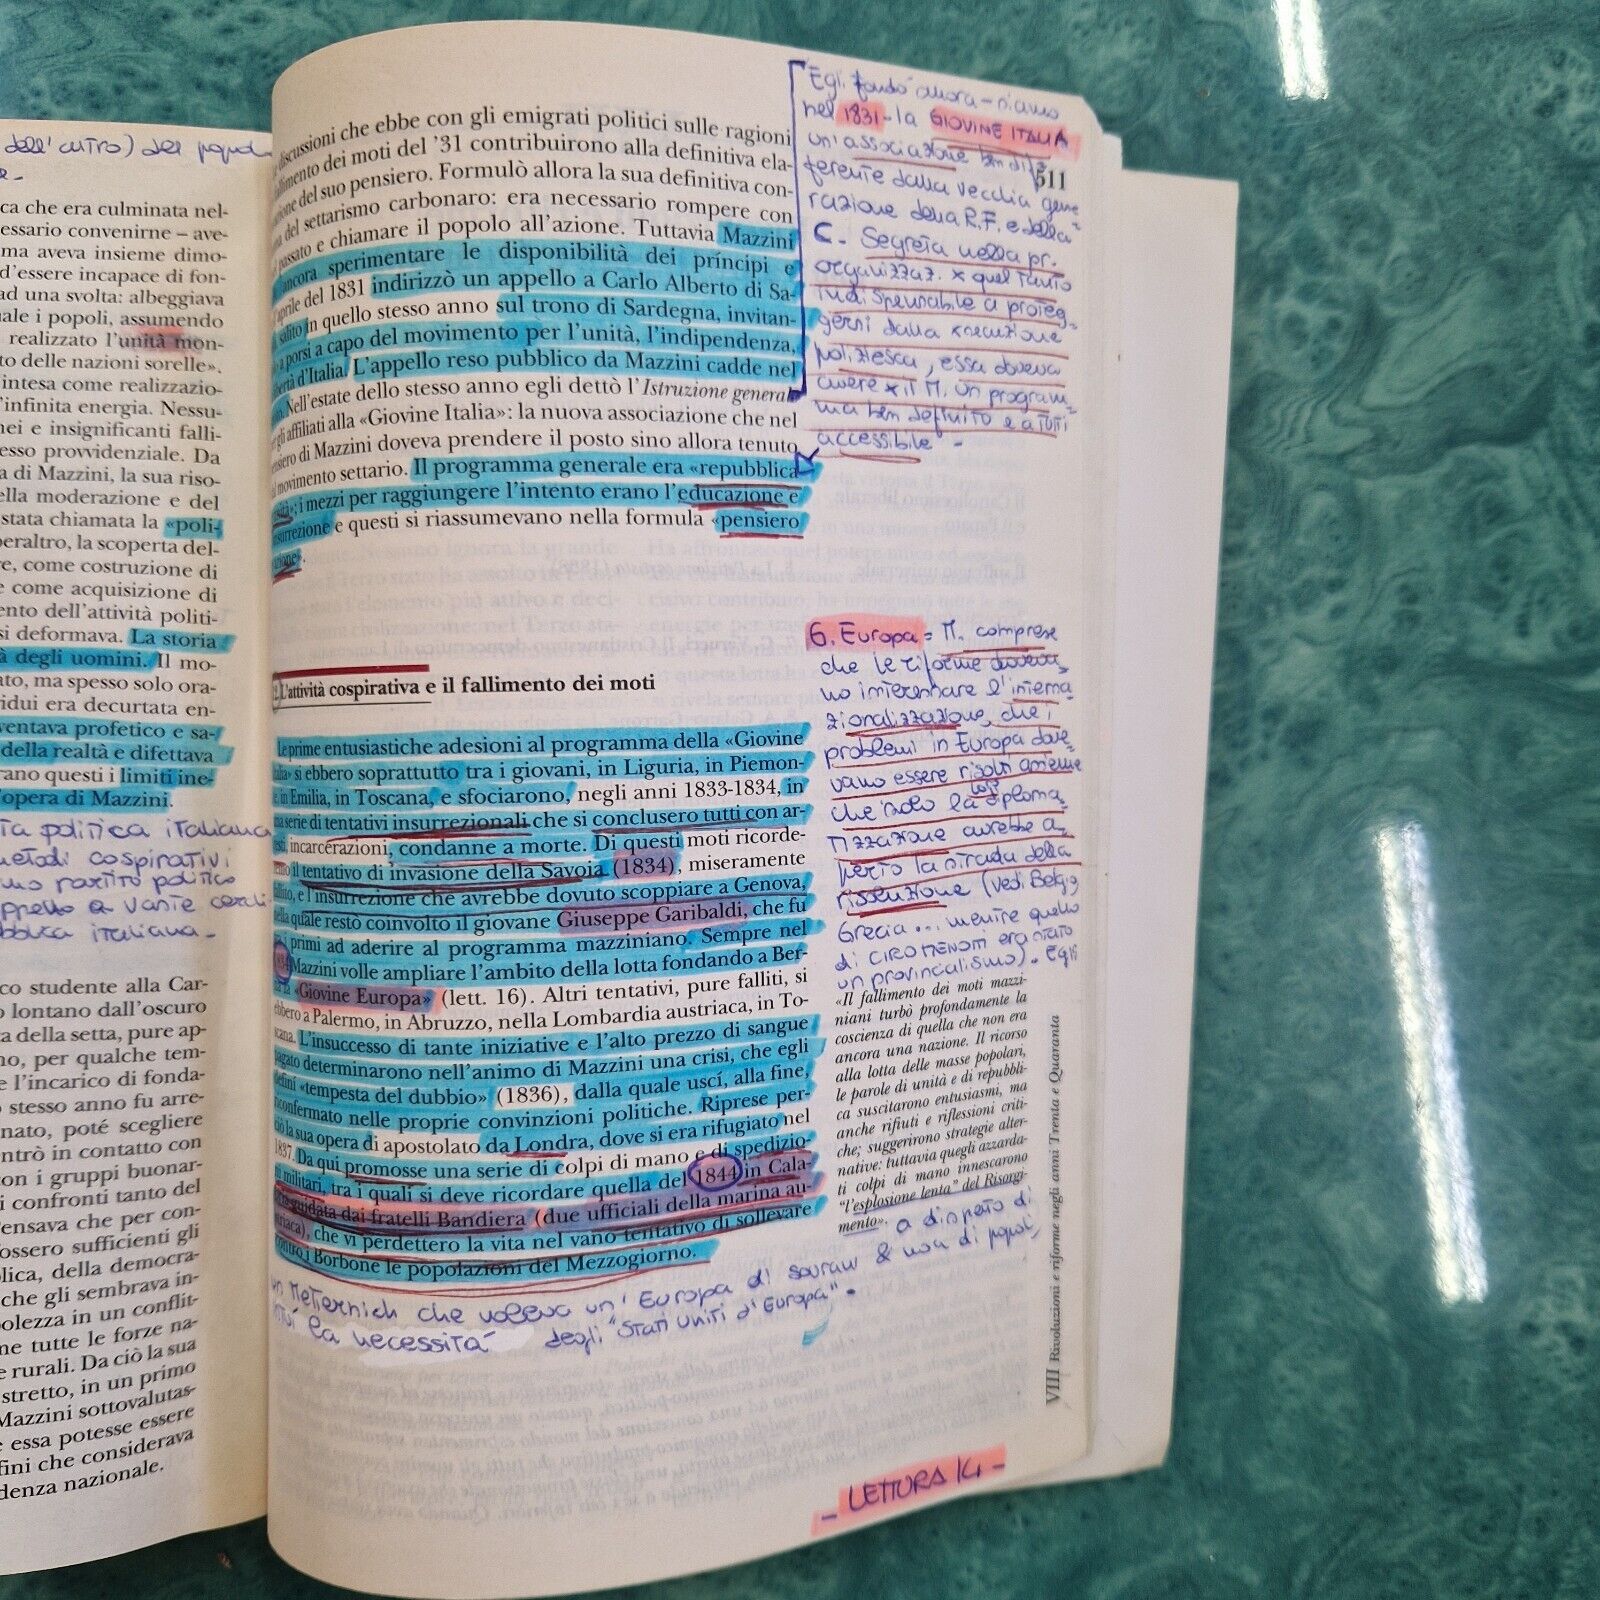 dell'altro) del popolo
ca che era culminata nel-
essario convenirne – ave-
ma aveva insieme dimo-
d'essere incapace di fon-
ad una svolta: albeggiava
uale i popoli, assumendo
realizzato l'unità mon-
to delle nazioni sorelle».
intesa come realizzazio-
'infinita energia. Nessu-
nei e insignificanti falli-
esso provvidenziale. Da
a di Mazzini, la sua riso-
ella moderazione e del
stata chiamata la «poli-
peraltro, la scoperta del-
re, come costruzione di
e come acquisizione di
ento dell'attività politi-
si deformava. La storia
à degli uomini. Il mo-
ato, ma spesso solo ora-
vidui era decurtata en-
ventava profetico e sa-
della realtà e difettava
rano questi i limiti ine-
'opera di Mazzini.
ta politica italiana
metodi cospirativi
mo partito politico
appello a varie
bblica italiana.
co studente alla Car-
o lontano dall'oscuro
a della setta, pure ap-
no, per qualche tem-
e l'incarico di fonda-
o stesso anno fu arre-
nato, poté scegliere
ntrò in contatto con
on i gruppi buonar-
i confronti tanto del
ensava che per con-
ossero sufficienti gli
lica, della democra-
che gli sembrava in-
olezza in un conflit-
ne tutte le forze na-
e rurali. Da ciò la sua
stretto, in un primo
Mazzini sottovalutas-
e essa potesse essere
fini che considerava
denza nazionale.
discussioni che ebbe con gli emigrati politici sulle ragioni
allimento dei moti del '31 contribuirono alla definitiva ela-
zione del suo pensiero. Formulò allora la sua definitiva con-
na del settarismo carbonaro: era necessario rompere con
passato e chiamare il popolo all'azione. Tuttavia Mazzini
ancora sperimentare le disponibilità dei príncipi e
aprile del 1831 indirizzò un appello a Carlo Alberto di Sa-
salito in quello stesso anno sul trono di Sardegna, invitan-
o a porsi a capo del movimento per l'unità, l'indipendenza,
bertà d'Italia. L'appello reso pubblico da Mazzini cadde nel
Nell'estate dello stesso anno egli dettò l'Istruzione generale
gli affiliati alla «Giovine Italia»: la nuova associazione che nel
ensiero di Mazzini doveva prendere il posto sino allora tenuto
movimento settario. Il programma generale era «repubblica
i mezzi per raggiungere l'intento erano l'educazione e
nsurrezione e questi si riassumevano nella formula «pensiero
azione».
Egli fondò allora – siamo
nel 1831 – la GIOVINE ITALIA
un'associazione ben dif-
511
ferente dalla vecchia gene-
razione della R.F. e della
C. Segreta nella pr.
organizzaz. x quel tanto
indispensabile a proteg-
gersi dalla xsecuzione
poliziesca, essa doveva
avere x il M. un program-
ma ben definito e a tutti
accessibile -
2. L'attività cospirativa e il fallimento dei moti
Le prime entusiastiche adesioni al programma della «Giovine
Italia» si ebbero soprattutto tra i giovani, in Liguria, in Piemon-
te, in Emilia, in Toscana, e sfociarono, negli anni 1833-1834, in
una serie di tentativi insurrezionali che si conclusero tutti con ar-
resti, incarcerazioni, condanne a morte. Di questi moti ricorde-
remo il tentativo di invasione della Savoia (1834), miseramente
fallito, e l'insurrezione che avrebbe dovuto scoppiare a Genova,
nella quale restò coinvolto il giovane Giuseppe Garibaldi, che fu
primi ad aderire al programma mazziniano. Sempre nel
1834 Mazzini volle ampliare l'ambito della lotta fondando a Ber-
na la «Giovine Europa» (lett. 16). Altri tentativi, pure falliti, si
ebbero a Palermo, in Abruzzo, nella Lombardia austriaca, in To-
scana. L'insuccesso di tante iniziative e l'alto prezzo di sangue
pagato determinarono nell'animo di Mazzini una crisi, che egli
definí «tempesta del dubbio» (1836), dalla quale uscí, alla fine,
riconfermato nelle proprie convinzioni politiche. Riprese per-
ciò la sua opera di apostolato da Londra, dove si era rifugiato nel
1837. Da qui promosse una serie di colpi di mano e di spedizio-
ni militari, tra i quali si deve ricordare quella del 1844 in Cala-
bria guidata dai fratelli Bandiera (due ufficiali della marina au-
striaca), che vi perdettero la vita nel vano tentativo di sollevare
contro i Borbone le popolazioni del Mezzogiorno.
G. Europa = M. comprese
che le riforme doveva-
no interessare l'interna-
zionalizzazione, che i
problemi in Europa dove-
vano essere risolti assieme
che solo la diploma-
tizzazione avrebbe a-
perto la strada della
(vedi Belgio
Grecia... mentre quello
di CIRO MENOTTI era stato
un provincialismo). Egli
«Il fallimento dei moti mazzi-
niani turbò profondamente la
coscienza di quella che non era
ancora una nazione. Il ricorso
alla lotta delle masse popolari,
le parole di unità e di repubbli-
ca suscitarono entusiasmi, ma
anche rifiuti e riflessioni criti-
che; suggerirono strategie alter-
native: tuttavia quegli azzarda-
ti colpi di mano innescarono
"l'esplosione lenta" del Risorgi-
mento».
a dispetto di
un Metternich che voleva un'Europa di sovrani & non di popoli,
la necessità degli "STATI UNITI d'Europa".
VIII Rivoluzioni e riforme negli anni Trenta e Quaranta
- LETTURA 14 -